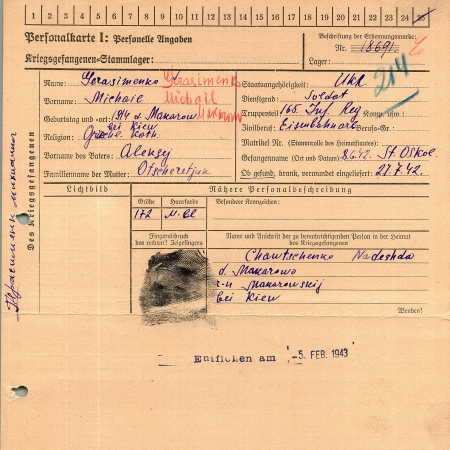 1 2 3 4 5 6 7 8 9 10 11 12 13 14 15 16 17 18 19 20 21 22 23 24 25
Personalkarte I: Personelle Angaben
Kriegsgefangenen-Stammlager:
Beschriftung der Erkennungsmarke
Nr. 18691
Lager:
214
Des Kriegsgefangenen
Name: Gerasimenko Gerasimenko
Vorname: Michail Michail
Geburtstag und -ort: 1914 d. Makarow
bei Kiew
Religion:
Vorname des Vaters: Aleksej
Familienname der Mutter: Otscheretjuk
Staatsangehörigkeit: Ukr
Dienstgrad: Soldat
Truppenteil: 165 Inf. Reg Komp. usw.:
Zivilberuf: Eisenbahnarb Berufs-Gr.:
Matrikel Nr. (Stammrolle des Heimatstaates):
Gefangennahme (Ort und Datum): 8.6.42. St. Oskol.
Ob gesund, krank, verwundet eingeliefert: 27.7.42.
Lichtbild
Nähere Personalbeschreibung
Größe Haarfarbe Besondere Kennzeichen:
172
Fingerabdruck
des rechten! Zeigefingers
Name und Anschrift der zu benachrichtigenden Person in der Heimat
des Kriegsgefangenen
Chawtschenko Nadeshda
d. Makarowo
r-n Makarowskij
bei Kiew
Wenden!
Entflohen am -5. FEB. 1943